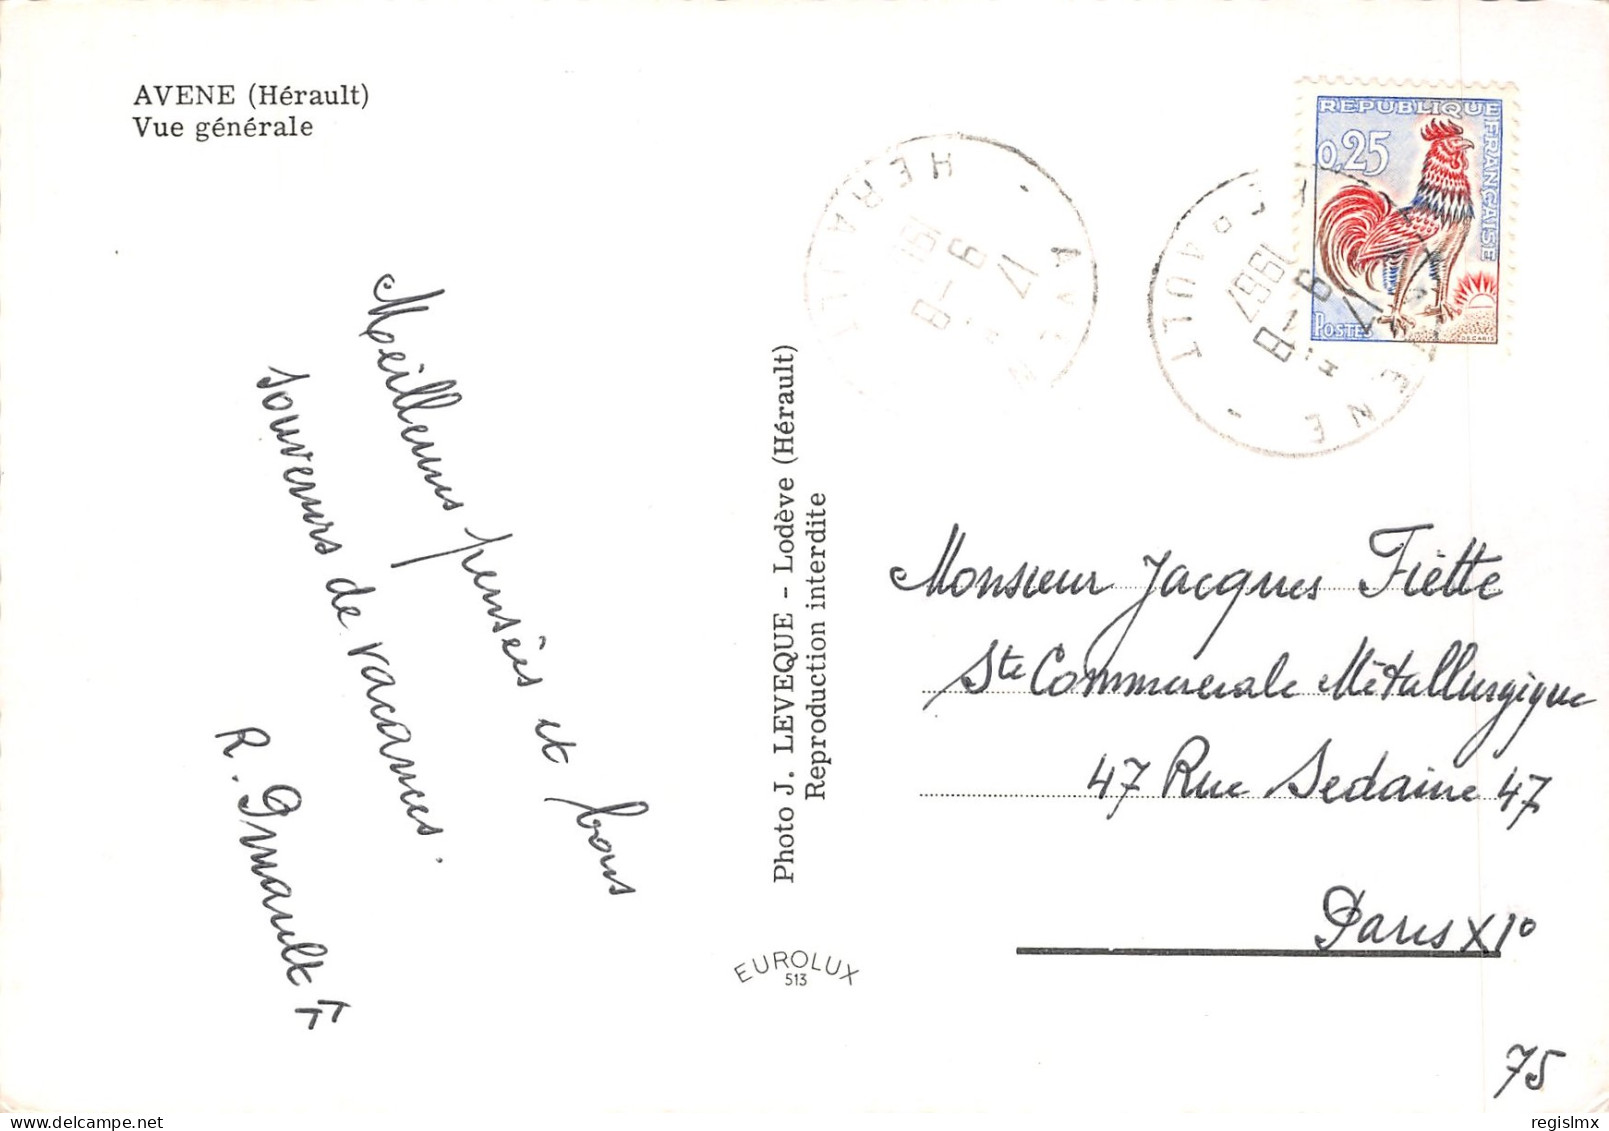 AVENE (Hérault)
Vue générale
Meilleurs pensées et bons
souvenirs de vacances.
R.
Photo J. LEVEQUE - Lodève (Hérault)
Reproduction interdite
EUROLUX
513
REPUBLIQUE FRANÇAISE
0,25
POSTES
DECARIS
HERAULT
AVENE
17 H
8-6
19
AVENE
HERAULT
17 H
8-6
1967
Monsieur Jacques Fiette
Sté Commerciale Métallurgique
47 Rue Sedaine 47
Paris XI°
75
regislmx